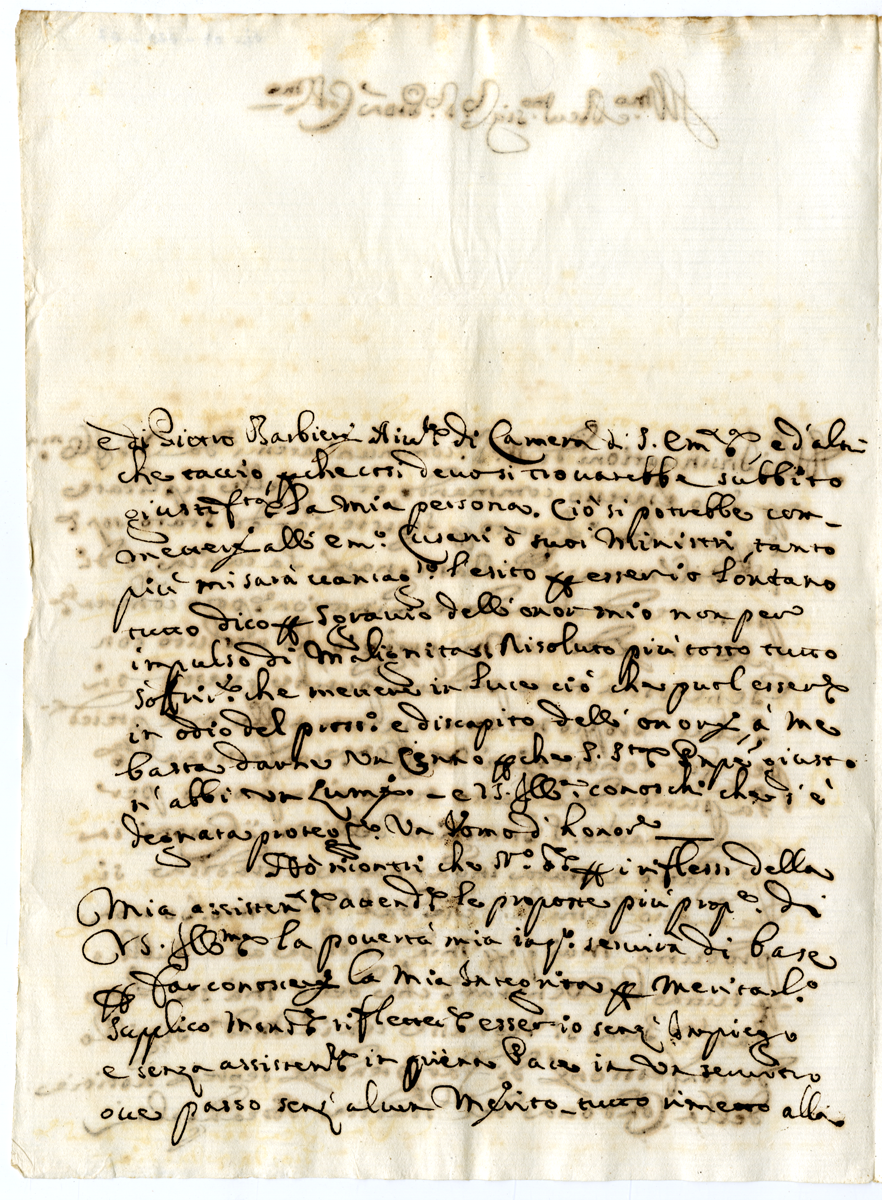 e di Pietro Barbieri Aiut.e di Camera di S. Em.za, e d'altri
che taccio, perche così devosi trovarebbe subbito
giustif.ta la mia persona. Ciò si potrebbe com-
mettere all' em.o Cusani ò suoi Ministri, tanto
più mi sarà vantag.so l'esito per esser io lontano
tutto dico per sgravio dell' onor mio non per
impulso di Malignità, Risoluto più tosto tutto
soffrire che mettere in luce ciò che puol essere
in odio del pross.o e discapito dell' onore, à me
basta darne un Cenno perche S. S.tà giusto
n' abbi un Lume. - e VS. Ill.ma conoschi che s' è
degnata protegere Un Uomo d' honore
Hò riontri che per i riflessi della
Mia assistenza le proposte più prop.e di
VS. Ill.ma la povertà mia servirà di base
per far conoscere la Mia Integrità per meritarlo
Supplico riflettere esser io senz' Impiego
e senza assistenza in un servitio
ove passo senz' alcun Merito, tutto rimetto alla